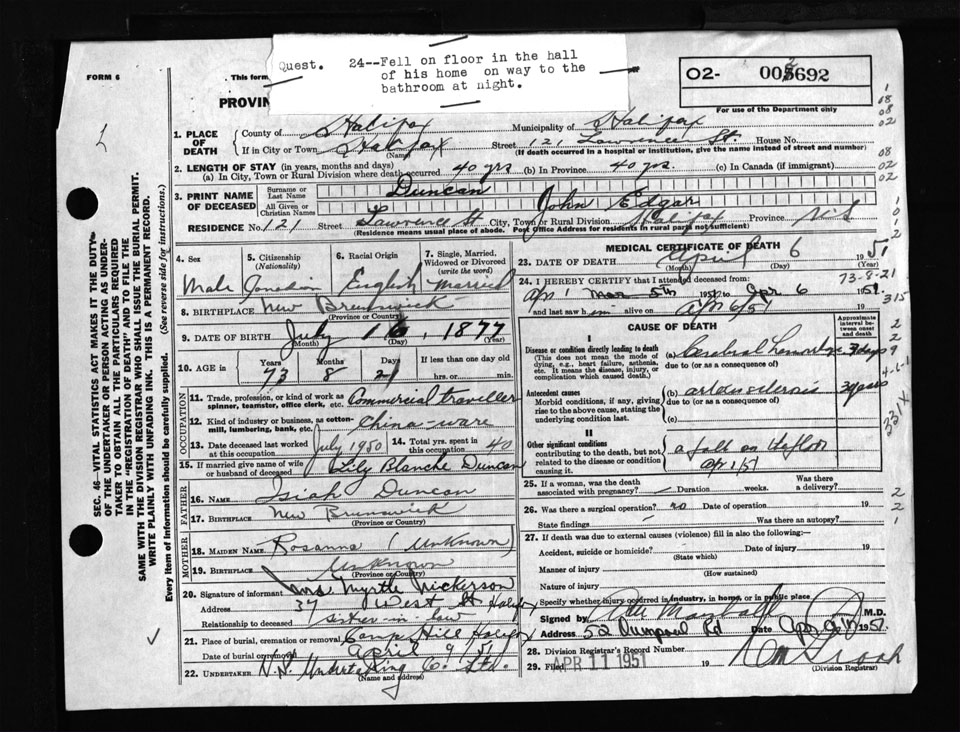 Quest. 24--Fell on floor in the hall
of his home on way to the
bathroom at night.
FORM 6
This form
PROVIN
O2- 005692
For use of the Department only
1. PLACE OF DEATH
County of Halifax Municipality of Halifax
If in City or Town Halifax Street 121 Lawrence St. House No.
(Name) (If death occurred in a hospital or institution, give the name instead of street and number)
2. LENGTH OF STAY (in years, months and days)
(a) In City, Town or Rural Division where death occurred 40 yrs (b) In Province 40 yrs. (c) In Canada (if immigrant)
3. PRINT NAME OF DECEASED
Surname or Last Name Duncan
All Given or Christian Names John Edgar
RESIDENCE No. 121 Street Lawrence St City, Town or Rural Division Halifax Province N.S
(Residence means usual place of abode. Post Office Address for residents in rural parts not sufficient)
4. Sex Male
5. Citizenship (Nationality) Canadian
6. Racial Origin English
7. Single, Married, Widowed or Divorced (write the word) Married
8. BIRTHPLACE New Brunswick
(Province or Country)
9. DATE OF BIRTH July 16, 1877
(Month) (Day) (Year)
10. AGE in Years Months Days If less than one day old
73 8 21 hrs. or min.
OCCUPATION
11. Trade, profession, or kind of work as spinner, teamster, office clerk, etc. Commercial traveller
12. Kind of industry or business, as cotton-mill, lumbering, bank, etc. China-ware
13. Date deceased last worked at this occupation July 1950 14. Total yrs. spent in this occupation 40
15. If married give name of wife or husband of deceased Lily Blanche Duncan
FATHER
16. NAME Isiah Duncan
17. BIRTHPLACE New Brunswick
(Province or Country)
MOTHER
18. MAIDEN NAME Rosanna (Unknown)
19. BIRTHPLACE Unknown
(Province or Country)
20. Signature of informant Mrs Myrtle Nickerson
Address 37 West St Halifax
Relationship to deceased sister-in-law
21. Place of burial, cremation or removal Camp Hill Halifax
Date of burial or removal April 9 51
22. UNDERTAKER N.S. Undertaking Co. Ltd.
(Name and address)
MEDICAL CERTIFICATE OF DEATH
23. DATE OF DEATH April 6 1951
(Month) (Day) (Year)
24. I HEREBY CERTIFY that I attended deceased from:
Apr 1 Mar 5th 1951 to Apr 6 1951.
and last saw him alive on Apr 6/51 19
73-8-21
315
CAUSE OF DEATH
Approximate interval between onset and death
I
Disease or condition directly leading to death
(This does not mean the mode of dying, e.g., heart failure, asthenia, etc. It means the disease, injury, or complication which caused death.)
(a) Cerebral hemorrhage 7 days
due to (or as a consequence of)
Antecedent causes
Morbid conditions, if any, giving rise to the above cause, stating the underlying condition last.
(b) arteriosclerosis years
due to (or as a consequence of)
(c)
331X
II
Other significant conditions
contributing to the death, but not related to the disease or condition causing it.
a fall on the floor
Apr 1/51
25. If a woman, was the death associated with pregnancy? Duration weeks. Was there a delivery?
26. Was there surgical operation? no Date of operation 19
State findings Was there an autopsy?
27. If death was due to external causes (violence) fill in also the following:—
Accident, suicide or homicide? Date of injury 19
(State which)
Manner of injury
(How sustained)
Nature of injury
Specify whether injury occurred in industry, in home, or in public place
Signed by Marshall M.D.
Address 52 Rd Date Apr 9th 1951.
28. Division Registrar's Record Number
29. Filed APR 11 1951 19
(Division Registrar)
SEC. 46—VITAL STATISTICS ACT MAKES IT THE DUTY
OF THE UNDERTAKER OR PERSON ACTING AS UNDER-
TAKER TO OBTAIN ALL THE PARTICULARS REQUIRED
IN THE "REGISTRATION OF DEATH" AND TO FILE THE
SAME WITH THE DIVISION REGISTRAR WHO SHALL ISSUE THE BURIAL PERMIT.
WRITE PLAINLY WITH UNFADING INK. THIS IS A PERMANENT RECORD.
Every item of information should be carefully supplied. (See reverse side for instructions.)